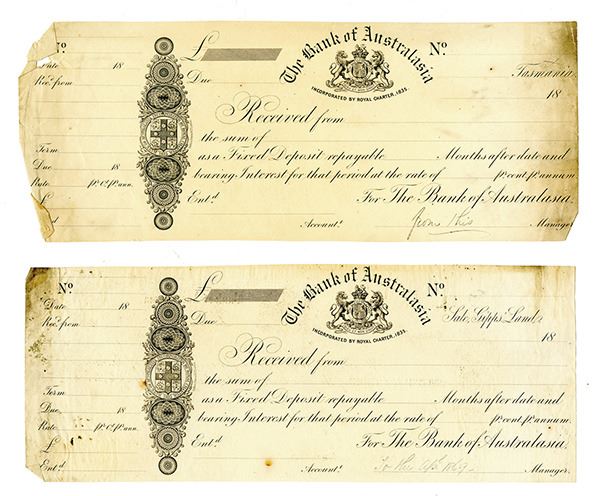 No £ The Bank of Australasia No
Date 18 Due Tasmania
Recd. from INCORPORATED BY ROYAL CHARTER, 1835. 18
Received from
the sum of
Term as a Fixed Deposit repayable Months after date and
Due 18 bearing Interest for that period at the rate of pr. cent. pr. annum.
Rate pr. Ct. pr. ann.
£ Entd. For The Bank of Australasia.
d Accountt. from this Manager.
No £ The Bank of Australasia No
Date 18 Due Sale, Gipps' Land,
Recd. from INCORPORATED BY ROYAL CHARTER, 1835. 18
Received from
the sum of
Term as a Fixed Deposit repayable Months after date and
Due 18 bearing Interest for that period at the rate of pr. cent. pr. annum.
Rate pr. Ct. pr. ann.
£ Entd. For The Bank of Australasia.
Entd. Accountt. To this 1869 Manager.